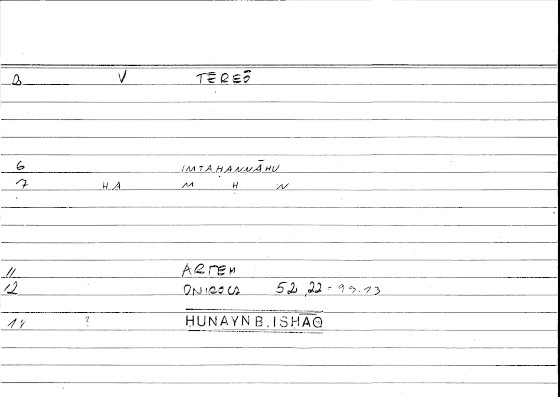 B V TĒREŌ
6 IMTAHANNĀHU
7 HA M H N
11 ARTEM
12 ONIROCR 52,22 = 99.13
14 ? HUNAYN B. ISHAQ